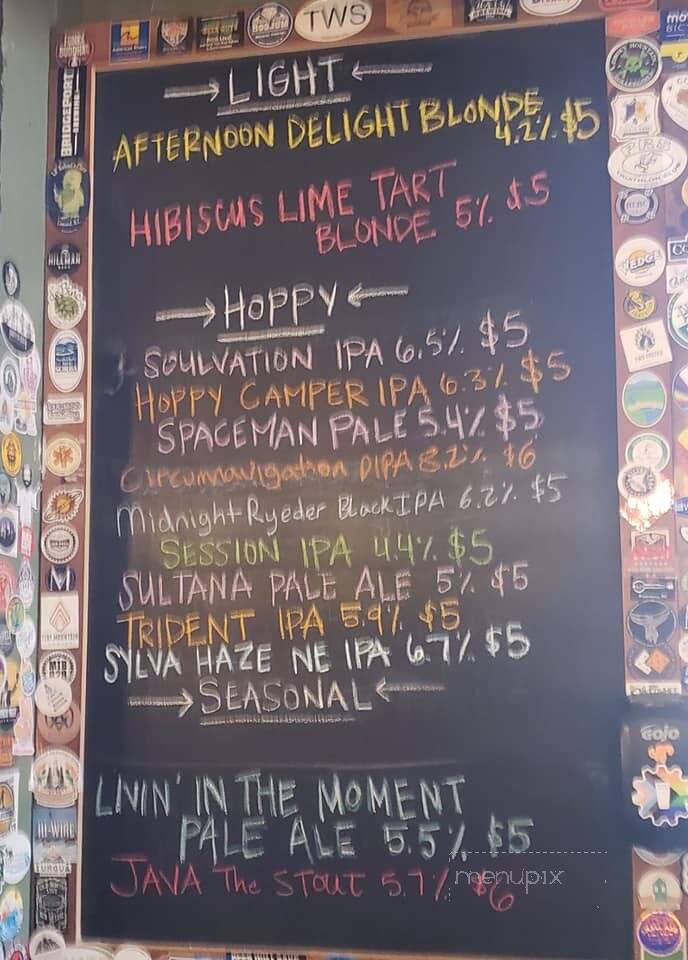 TWS
BRIDGEPORT
→ LIGHT ←
AFTERNOON DELIGHT BLONDE
4.2% $5
HIBISCUS LIME TART
BLONDE 5% $5
→ HOPPY ←
SOULVATION IPA 6.5% $5
HOPPY CAMPER IPA 6.3% $5
SPACEMAN PALE 5.4% $5
Circumnavigation DIPA 8.2% $6
Midnight Ryeder Black IPA 6.2% $5
SESSION IPA 4.4% $5
SULTANA PALE ALE 5% $5
TRIDENT IPA 5.9% $5
SYLVA HAZE NE IPA 6.7% $5
→ SEASONAL ←
LIVIN' IN THE MOMENT
PALE ALE 5.5% $5
JAVA The STOUT 5.7% $6
menupix
HILLMAN
WEDGE
GOJO
HI-WIRE